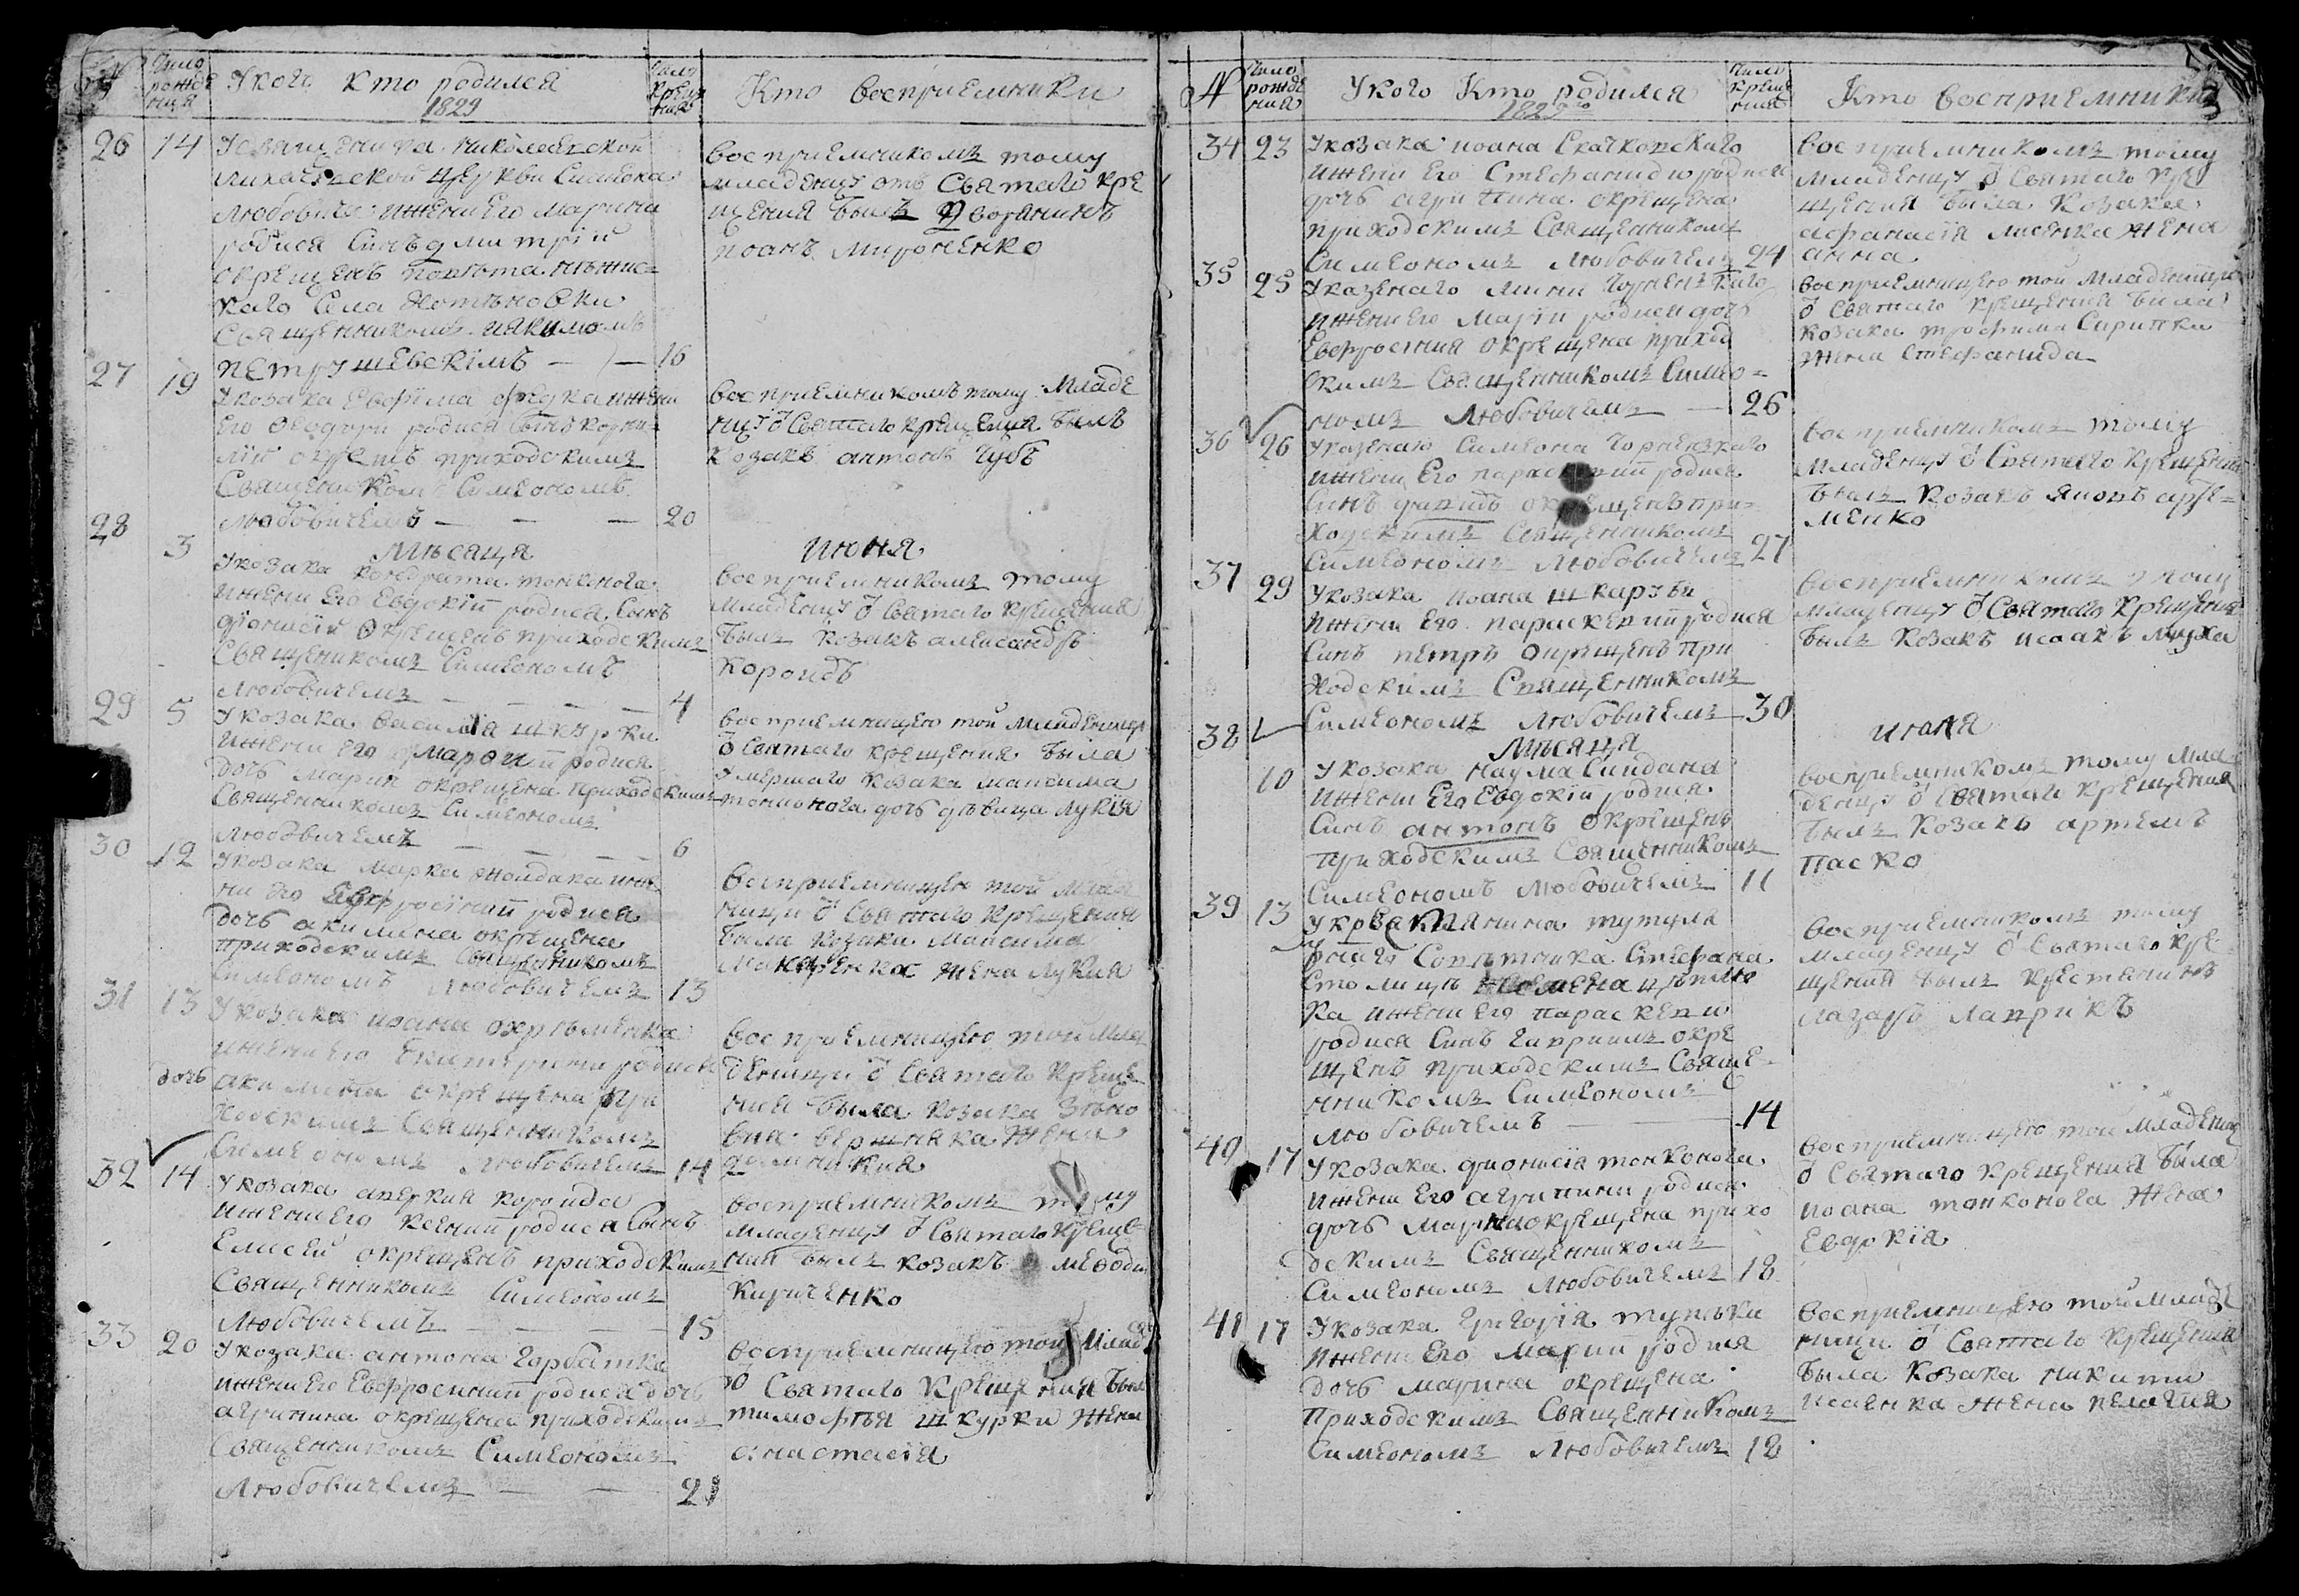 №
Число рожде ния
У кого кто родился
1829
Число Креще ния
Кто восприемники
26 14 У священика николаевской
церкви Симеона
Любовича ижени Его Марини
родися Синъ дмитрій
окрещенъ повѣта нѣжис=
каго Села Хотѣновки
Священникомъ иякимомъ
петрушевскімъ — — 16
восприемникомъ тому
младенцу отъ Святаго кре
щения былъ Дворянинъ
иоанъ мироненко
27 19 У козака Евфима ижени
Его Феодори родися Сынъ корни=
лій окрещ приходскимъ
Священикомъ Симеономъ
любовичемъ — — — 20
восприемникомъ тому Младе
нцу Ѿ Святаго крещения былъ
козакъ антонъ Чубъ
Мѣсяца июня
28 3 У козака кондрата тонконога
ижени Его Евдокіи родися Сынъ
діонисій окрещенъ приходскимъ
Священикомъ Симеономъ
Любовичемъ — — — 4
восприемникомъ тому
младенцу Ѿ Святаго крещения
былъ козакъ александръ
короидъ
29 5 У козака василія шкурки
ижени его родися
дочь мария окрещена приходскимъ
Священникомъ Симеономъ
Любовичемъ — — — — 6
восприемницею той младеници
Ѿ Святаго крещения была
умершаго козака максима
тонконога дочь дѣвица лукія
30 12 У козака марка жолдака иже
ни его родися
дочь акилина окрещена
приходскимъ Священникомъ
Симеономъ Любовичемъ 13
восприемницею той млад
ници Ѿ Святаго крещения
была козака максима
жена лукия
31 13 У козака иоана охрѣменка
ижени его Екатерини родися
дочь акилина окрещена при
ходскимъ Священникомъ
Симеономъ Любовичемъ 14
восприемницею той мла
деници Ѿ Святаго креще
ния была козака Зѣно
вия вершняка жена
домникия
32 14 У козака аверкия короида
ижени его Ксении родися Сынъ
Елисей окрещенъ приходскимъ
Священникомъ Симеономъ
Любовичемъ — — — 15
восприемникомъ тому
младенцу Ѿ Святаго креще
ния былъ козакъ меѳоди
Кириченко
33 20 У козака антона Горбатка
ижени его Евфросинии родися дочь
агрипина окрещена приходскимъ
Священникомъ Симеономъ
Любовичемъ — — 21
восприемницею той млад
Ѿ Святаго крещения был
тимофѣя шкурки жена
анастасія
№
Число рожде ния
У кого Кто родился
1829го
Число Креще ния
Кто восприемники
3
34 23 У козака иоана Скачковскаго
ижени его Стефаниди родися
дочь агрипина окрещена
приходскимъ Священникомъ
Симеономъ Любовичемъ 24
восприемникомъ тому
младенцу Ѿ Святаго кре
щения была козака
афанасія лисенка жена
анна
35 25 У казенаго Чорнензкаго
ижени его Маріи родися дочь
Евфросиния окрещена приход
скимъ Священникомъ Симео=
номъ Любовичемъ — 26
восприемницею той младеници
Ѿ Святаго крещения была
козака трофима Скрипки
жена стефанида
36 26 У казенаго Симеона Чорнензкаго
ижени Его параскевии родися
Синъ давидъ окрещенъ при=
ходскимъ Священникомъ
Симеономъ Любовичемъ 27
восприемникомъ тому
младенцу Ѿ Святаго крещения
былъ козакъ яковъ арте=
менко
37 29 У козака иоана шкарубы
ижени его параскевии родися
Синъ петръ окрещенъ при
ходскимъ Священникомъ
Симеономъ Любовичемъ — 30
восприемникомъ тому
младенцу Ѿ Святаго крещения
былъ козакъ исаакъ муха
Мѣсяца июля
38 10 У козака наума Синдана
ижени его Евдокіи родися
Синъ антонъ окрещенъ
приходскимъ Священникомъ
Симеономъ Любовичемъ 11
восприемникомъ тому мла
денцу Ѿ Святаго крещения
былъ козакъ артемъ
паско
39 13 титуля
рнаго Совѣтника Стефана
ка ижени его параскеви
родися Синъ Гавриилъ окре
щенъ приходскимъ Свяще=
нникомъ Симеономъ
Любовичемъ — — 14
восприемникомъ тому
младенцу Ѿ Святаго кре=
щения былъ крестянинъ
лазаръ лаврикъ
40 17 У козака дионисія тонконога
ижени Его агрипини родися
дочь Марина окрещена прихо
дскимъ Священникомъ
Симеономъ Любовичемъ 18
восприемницею той младениц
Ѿ Святаго крещения была
иоана тонконога жена
Евдокія
41 17 У козака Григорія тупѣки
ижени Его Марии родися
дочь марина окрещена
приходскимъ Священникомъ
Симеономъ Любовичемъ 18
восприемницею той младе
ници Ѿ Святаго крещения
была козака никити
исаенка жена пелагия